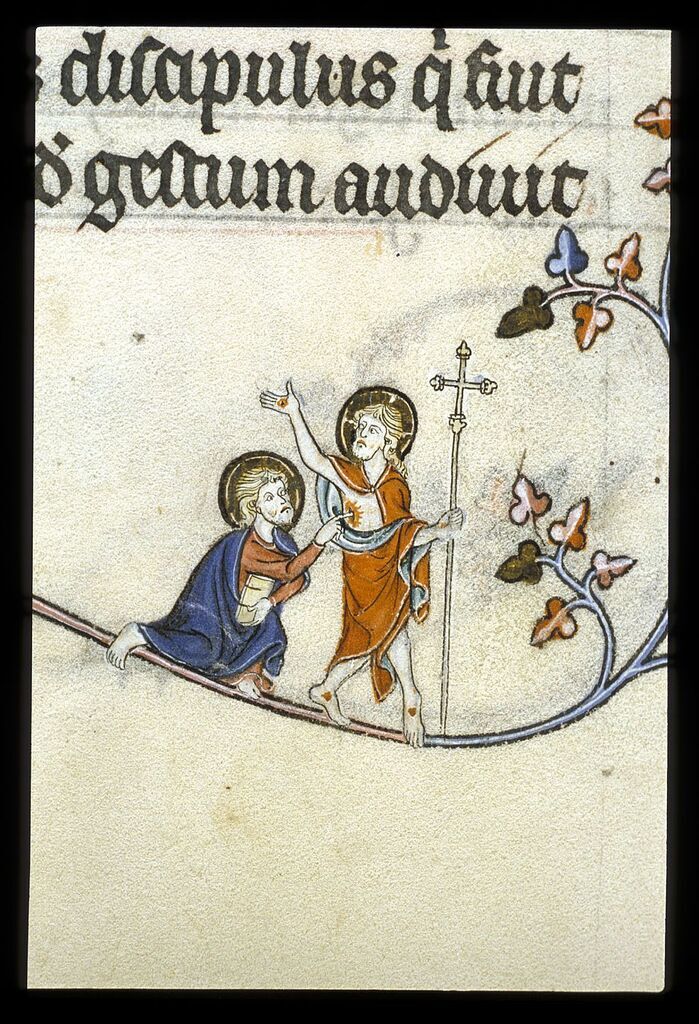 s discipulus q̃ fuit
d̕ gestum audiuit